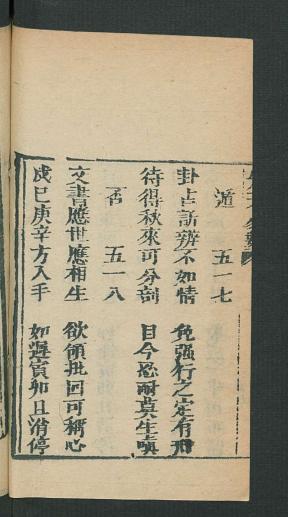 遁　五一七
卦占訴辨不如情　免强行之定有刑
待得秋來可分剖　目今忍耐莫生嗔
否　五一八
文書應世應相生　欲領批回可稱心
戌巳庚辛方入手　如遲寅卯且消停